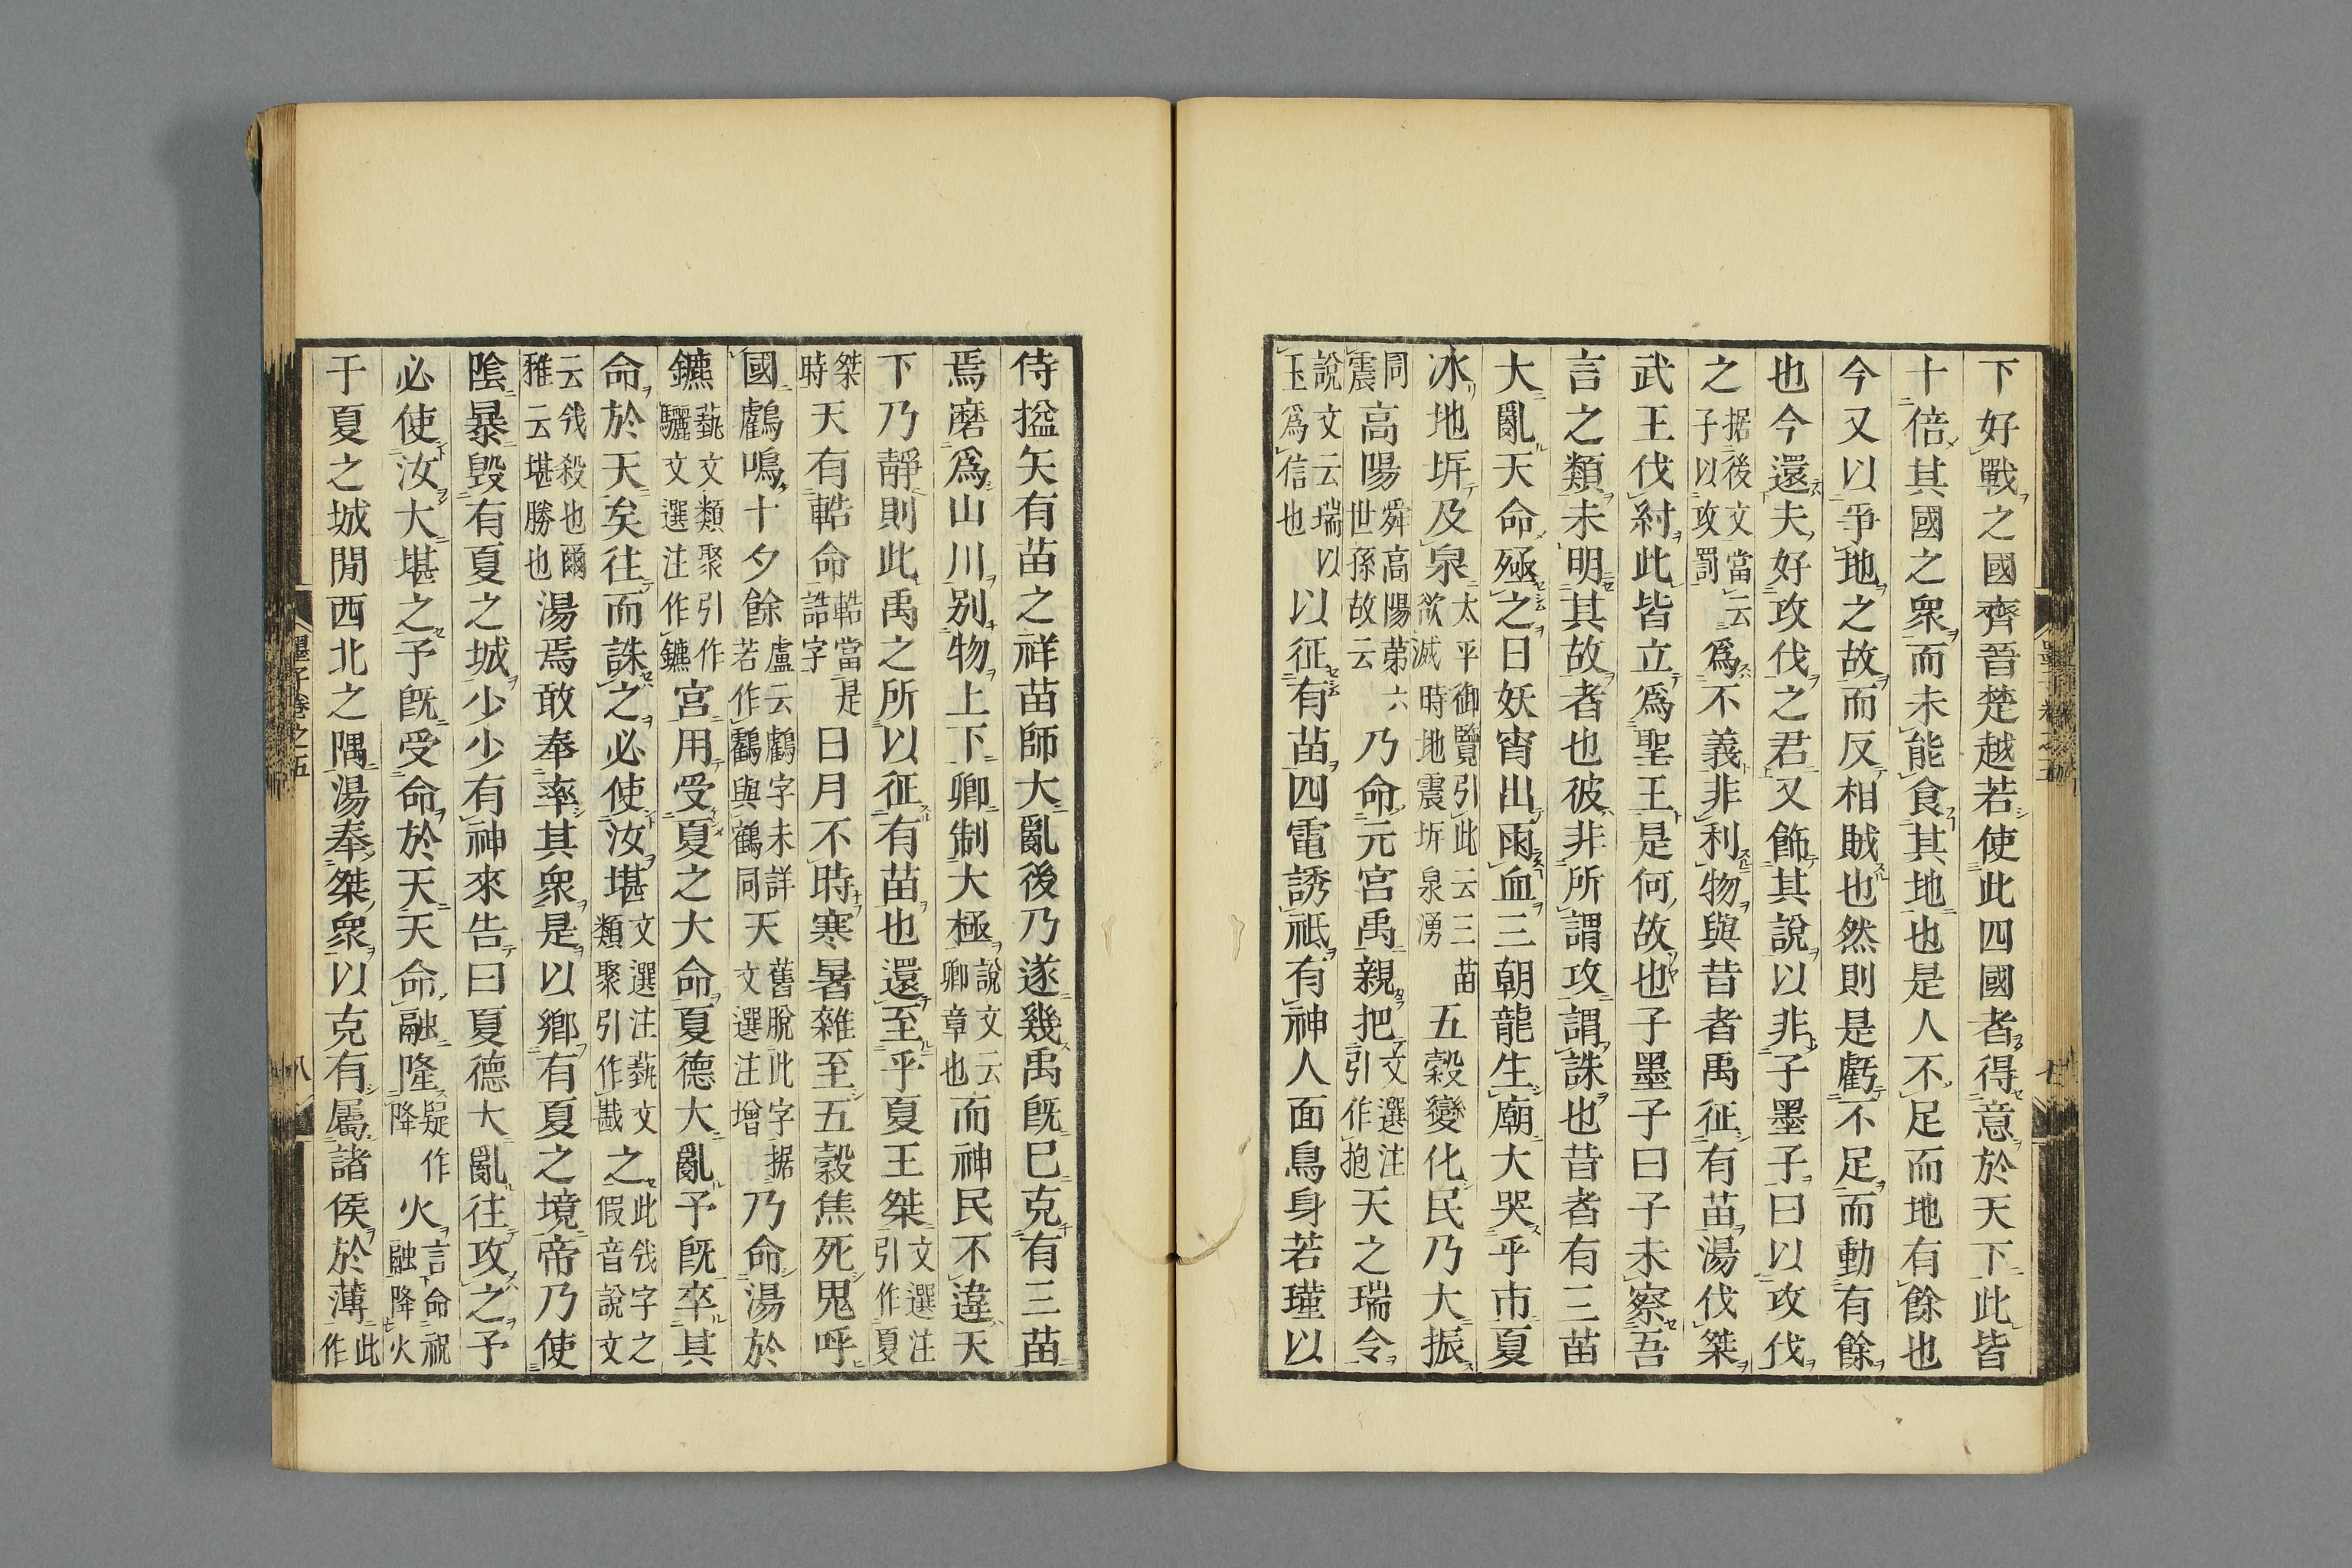 下好戰之國齊晉楚越若使此四國者得意於天下此皆
十倍其國之衆而未能食其地也是人不足而地有餘也
今又以爭地之故而反相賊也然則是虧不足而動有餘
也今還夫好攻伐之君又飾其說以非子墨子曰以攻伐
之据後文當云子以攻罰爲不義非利物與昔者禹征有苗湯伐桀
武王伐紂此皆立爲聖王是何故也子墨子曰子未察吾
言之類未明其故者也彼非所謂攻謂誅也昔者有三苗
大亂天命殛之日妖宵出雨血三朝龍生廟大哭乎市夏
冰地坼及泉太平御覽引此云三苗欲滅時地震坼泉湧五穀變化民乃大振
同震高陽舜高陽第六世孫故云乃命元宮禹親把文選注引作抱天之瑞令
說文云瑞以玉爲信也以征有苗四電誘祗有神人面鳥身若瑾以
侍搤矢有苗之祥苗師大亂後乃遂幾禹旣已克有三苗
焉磨爲山川別物上下卿制大極說文云卿章也而神民不違天
下乃靜則此禹之所以征有苗也還至乎夏王桀文選注引作夏
桀時天有䡷命䡷當是誥字日月不時寒暑雜至五穀焦死鬼呼
國鸖鳴十夕餘盧云鸖字未詳若作鸖與鶴同天舊脫此字据文選注增乃命湯於
鑣藝文類聚引作驪文選注作鑣宮用受夏之大命夏德大亂予旣卒其
命於天矣往而誅之必使汝堪文選注藝文類聚引作戡之此㦰字之假音說文
云㦰殺也爾雅云堪勝也湯焉敢奉率其衆是以鄉有夏之境帝乃使
陰暴毁有夏之城少少有神來告曰夏德大亂往攻之予
必使汝大堪之予旣受命於天天命融隆疑作降火言命祝融降火
于夏之城閒西北之隅湯奉桀衆以克有屬諸侯於薄此作
墨子卷之五
七
墨子卷之五
八